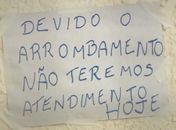 DEVIDO O
ARROMBAMENTO
NÃO TEREMOS
ATENDIMENTO
HOJE